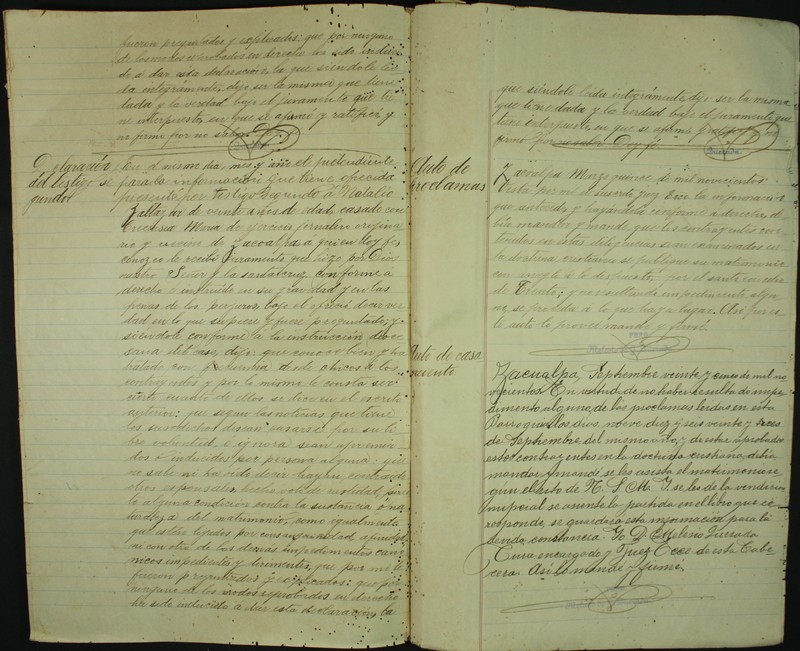 fueron preguntados y explicados: que por ninguno
de los modos reprobados en derecho ha sido inducido
a dar esta declaracion, la que siendole leida
integramente, dijo ser la misma que tiene
dada y la verdad bajo el juramento que tiene
interpuesto, en que se afirmó y ratificó y
no firmó por no saber.
Declaración
del testigo segundo
En el mismo dia, mes y año el pretendiente
para la informacion que tiene ofrecida
presentó por testigo segundo á Natalio
de veinte años de edad, casado con
de ejercicio jornalero originario
y vecino de Zacoalpa a quien doy fé
conozco le recibí juramento que hizo por Dios
nuestro Señor y la santa cruz conforme á
derecho é instruido en su gravedad y en las
penas de los perjuros, bajo el ofreció decir verdad
en lo que supiere y fuere preguntado, y
siendole conforme á la instruccion diocesana
del caso, dijo: que conoce bien y ha
tratado con frecuencia desde chicos á los
contrayentes y por lo mismo le consta ser
cierto cuanto de ellos se dice en el escrito
anterior: que segun las noticias que tiene
los suscitados desean casarse por su libre
voluntad, é ignora sean apremiados
o inducidos por persona alguna: que
no sabe ni ha oido decir hayan contraido
otros esponsales, hecho voto de castidad, puesto
alguna condicion contra la sustancia ó naturaleza
del matrimonio, como igualmente
que esten ligados por consanguinidad, afinidad
ni con otro de los demás impedimentos canonicos
impedientes y dirimentes, que por mi le
fueron preguntados y explicados: que por
ninguno de los modos reprobados en derecho
ha sido inducido a dar esta declaración, la
que siendole leida integramente, dijo ser la misma
que tiene dada y la verdad bajo el juramento que
tiene interpuesto, en que se afirmó y ratificó y no
firmó por no saber. Doy fé.
Auto de
proclamas
Zacualpa Marzo quince de mil novecientos
Vista por mi el suscrito Juez Ecco la informacion
que antecede y hayandola conforme a derecho, debia
mandar y mando que los contrayentes contenidos
en estas diligencias sean examinados en
la doctrina cristiana se publique su matrimonio
con arreglo á lo dispuesto por el santo concilio
de Trento; y no resultando impedimento alguno,
se proceda á lo que haya lugar. Asi por este
auto lo proveé mandé y firmé.
Auto de casamiento.
Zacualpa, Septiembre veinte y cinco de mil novecientos.
En virtud de no haber resultado impedimento
alguno de las proclamas leidas en esta
Parroquia los dias, nueve diez y seis veinte y tres
de Septiembre del mismo año, y de estar aprobados
estos contrayentes en la doctrina cristiana, debia
mandar y mandé se les asista el matrimonio segun
el rito de N. S. M. Y. se les de la bendicion
nupcial se asiente la partida en el libro que corresponde,
se guarde esta informacion para la
debida constancia. Yo D. Quesada
Cura encargado y Juez Ecco de esta Cabecera.
Asi lo mandé y firmé.